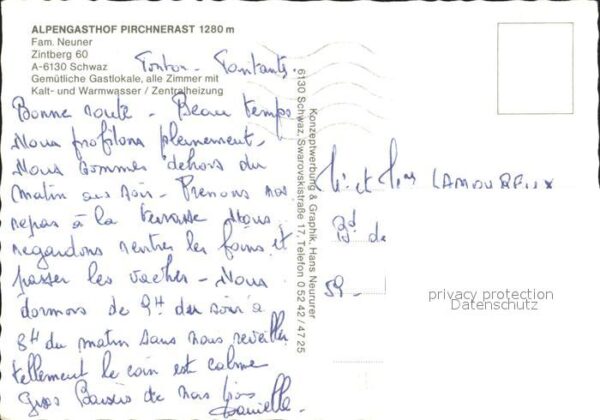 ALPENGASTHOF PIRCHNERAST 1280 m
Fam. Neuner
Zintberg 60
A-6130 Schwaz
Gemütliche Gastlokale, alle Zimmer mit
Kalt- und Warmwasser / Zentralheizung
Tonton - Tantante.
Bonne route - Beau temps
Nous profitons pleinement -
Nous sommes dehors du
matin au soir - Prenons nos
repas à la terrasse Nous
regardons rentrer les foins et
passer les vaches - Nous
dormons de 9H du soir à
8H du matin sans nous reveiller
tellement le coin est calme
Gros Baisers de nous trois
Danielle
Konzeptwerbung & Graphik, Hans Neururer
6130 Schwaz, Swarovskistraße 17, Telefon 0 52 42 / 47 25
Mr et Mme LAMOUREUX
Bd de
59 -
privacy protection
Datenschutz